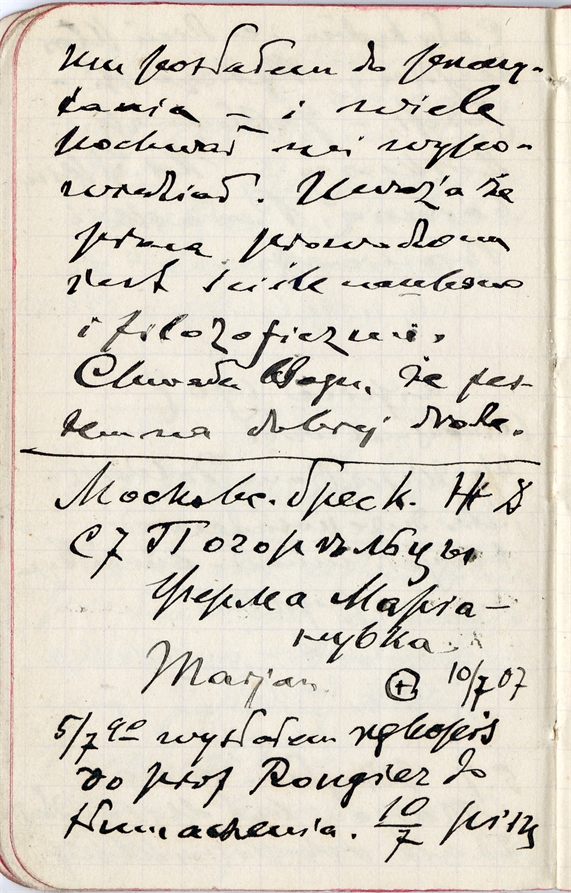 mu posłałem do przeczy-
tania – i wiele
pochwał mi wypo-
wiedział. Uważa że
praca prowadzona
jest ściśle naukowo
i filozoficznie.
Chwała Bogu, że jes-
tem na dobrej drodze.
Московс. Бреск. Ж Д
С7 Погорѣльцы
Ферма Марiа-
нувка
Marjan 10/7 07
5/7 go wysłałem rękopis
do prof Rongier do
tłumaczenia. 10/7 piszę